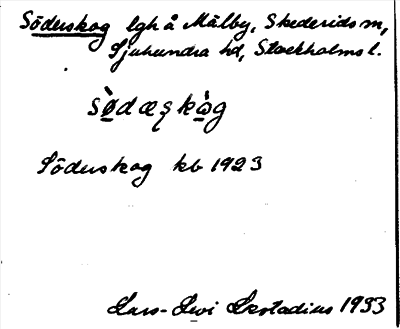 Söderskog lgh å Målby, Skederids m,
Sjuhundra hd, Stockholms l.
sö̀dæʂkò̱g
Söderskog kb 1923
Lars-Levi Læstadius 1933